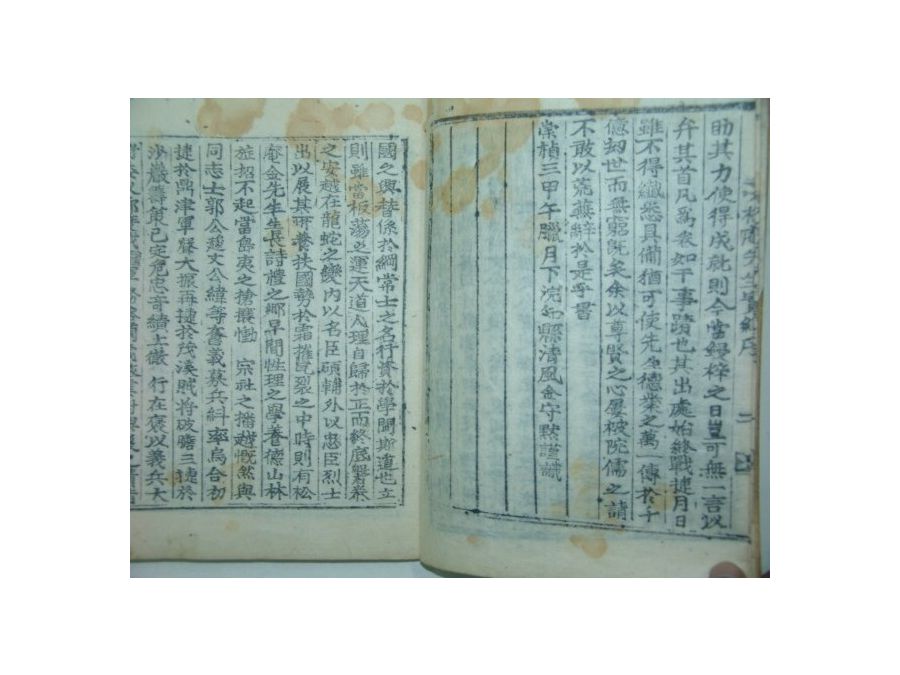 松庵先生實紀序 二
助其力使得成就則今當鋟梓之日豈可無一言以
弁其首凡爲我如干事蹟也其出處始終戰捷月日
雖不得纖悉具備猶可使先生德業之萬一傳於千
億刼世而無窮旣矣余以尊賢之心屢被院儒之請
不敢以荒蕪辭於是乎書
崇禎三甲午臘月下浣知縣清風金守默謹識
國之興替係於綱常士之名行資於學問斯道也立
則雖當板蕩之運天道人理自歸於正而終底盤泰
之安越在龍蛇之變內以名臣碩輔外以忠臣烈士
出以展其所養扶國勢於霜摧瓦裂之中時則有松
庵金先生生長詩禮之鄕早聞性理之學養德山林
旌招不起當島夷之搶攘慟 宗社之播越慨然與
同志士郭公越文公緯等奮義募兵糾率烏合初
捷於鼎津軍聲大振再捷於茂溪賊將破膽三捷於
沙巖籌策已定危忠奇績上徹 行在褒以義兵大